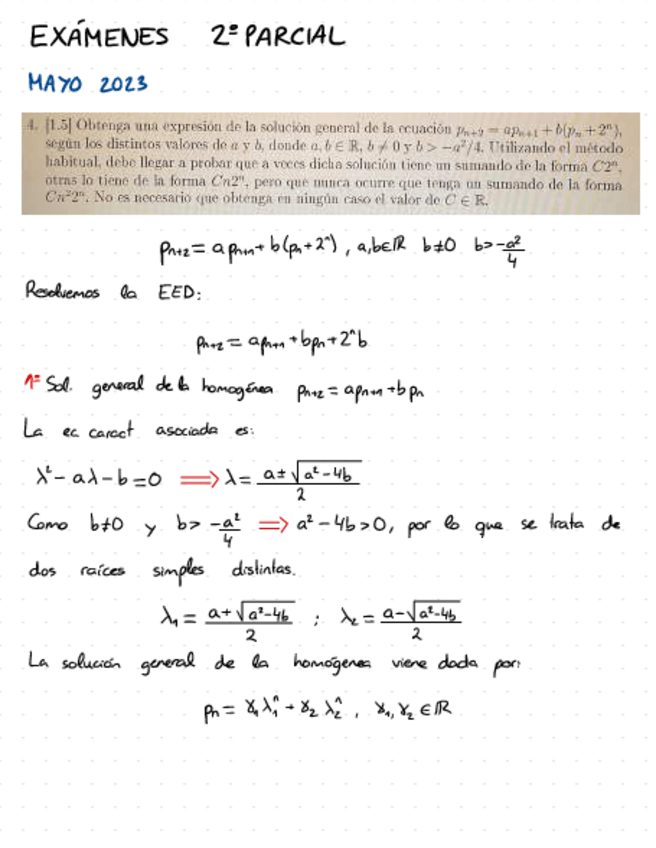 EXÁMENES 2º PARCIAL
MAYO 2023
4. [1.5] Obtenga una expresión de la solución general de la ecuación pₙ₊₂ = apₙ₊₁ + b(pₙ + 2ⁿ),
según los distintos valores de a y b, donde a, b ∈ ℝ, b ≠ 0 y b > −a²/4. Utilizando el método
habitual, debe llegar a probar que a veces dicha solución tiene un sumando de la forma C2ⁿ,
otras lo tiene de la forma Cn2ⁿ, pero que nunca ocurre que tenga un sumando de la forma
Cn²2ⁿ. No es necesario que obtenga en ningún caso el valor de C ∈ ℝ.
pₙ₊₂ = a pₙ₊₁ + b(pₙ + 2ⁿ), a,b∈ℝ b≠0 b>-a²/4
Resolvemos la EED:
pₙ₊₂ = apₙ₊₁ + bpₙ + 2ⁿb
1º Sol. general de la homogénea pₙ₊₂ = apₙ₊₁ + b pₙ
La ec caract asociada es:
λ² - aλ - b = 0 ⟹ λ = (a ± √(a² - 4b))/2
Como b≠0 y b> -a²/4 ⟹ a² - 4b > 0, por lo que se trata de
dos raíces simples distintas.
λ₁ = (a + √(a² - 4b))/2 ; λ₂ = (a - √(a² - 4b))/2
La solución general de la homógenea viene dada por:
pₙ = γ₁ λ₁ⁿ + γ₂ λ₂ⁿ, γ₁, γ₂ ∈ ℝ